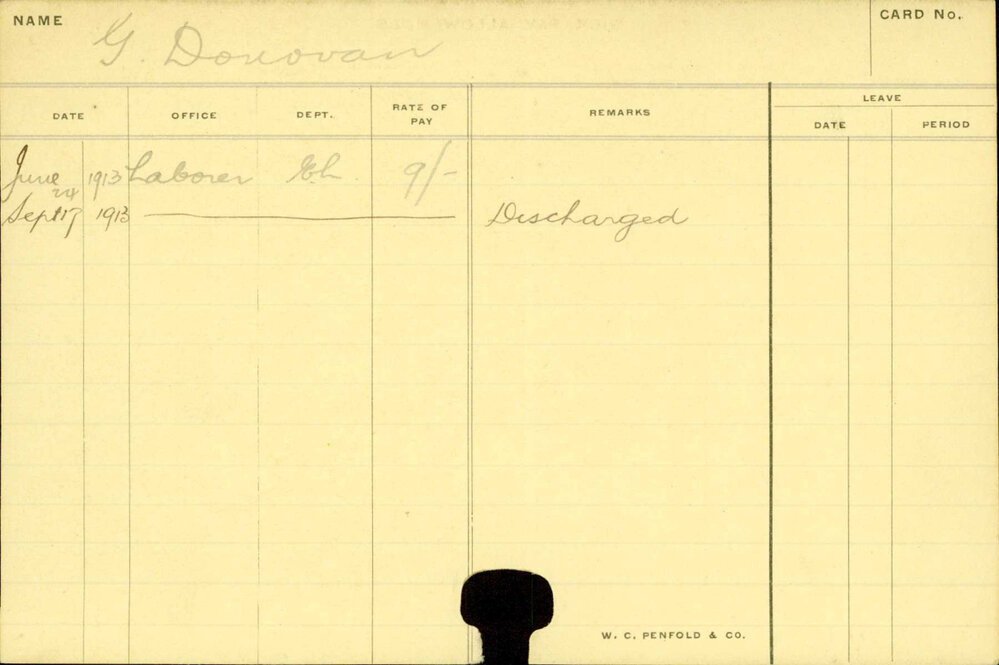 NAME G. Donovan CARD No.
DATE OFFICE DEPT. RATE OF PAY REMARKS LEAVE
DATE PERIOD
June 24 1913 Laborer 9/-
Sept 17 1913 Discharged
W. C. PENFOLD & CO.